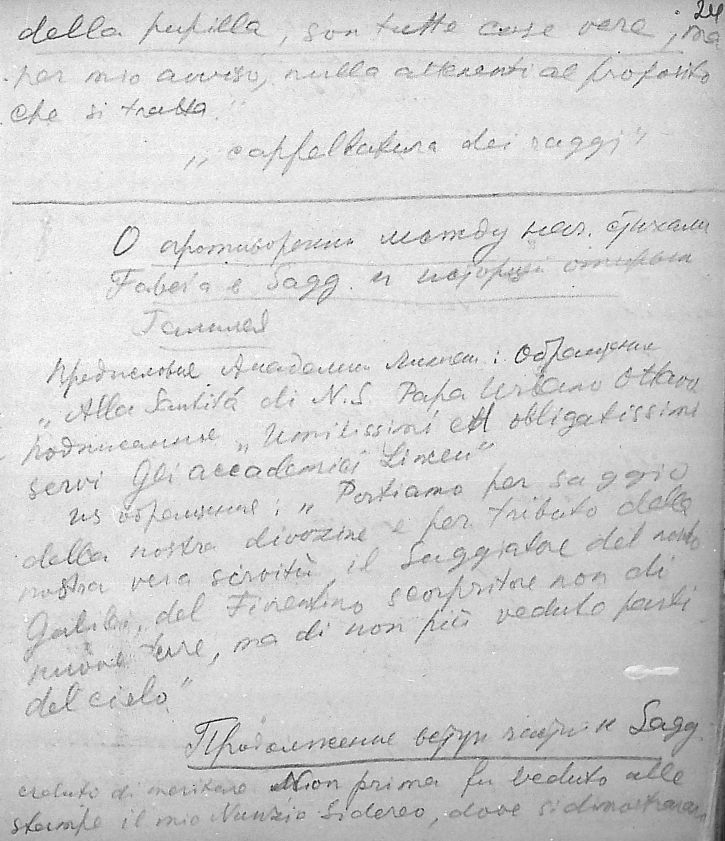 24
della pupilla, son tutte cose vere, ma
per mio avviso, nulla attenenti al proposito
che si tratta."
„cappellatura dei raggi"
О противоречии между нач. строками
e Sagg. и историей открыт
Галилея
Предисловие Академии Линчеи: Обращение
„Alla Santità di N.S. Papa Urbano Ottavo
подписанные „Umilissimi ed obligatissimi
servi Gli accademici Lincei"
из обращения: „Portiamo per saggio
della nostra divozine e per tributo della
nostra vera servitù il Saggiatore del nostro
Galilei, del Fiorentino scopritore non di
nuove terre, ma di non più vedute parti
del cielo"
Продолжение вступ части к Sagg.
creduto di meritare Non prima fu veduto alle
stampe il mio Nunzio Sidereo, dove si dimostravan